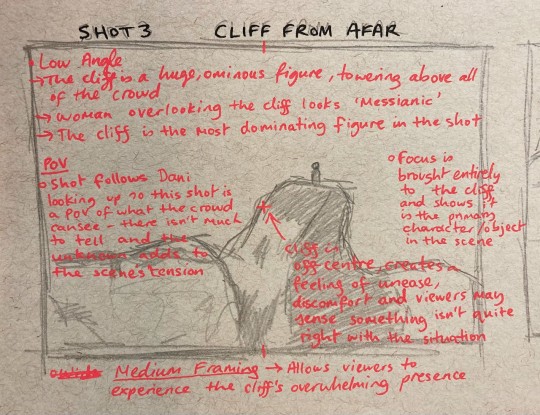 SHOT 3 CLIFF FROM AFAR
Low Angle
→ The cliff is a huge, ominous figure, towering above all
of the crowd
→ Woman overlooking the cliff looks 'Messianic'
→ The cliff is the most dominating figure in the shot
POV
Shot follows Dani
looking up so this shot is
a POV of what the crowd
can see - there isn't much
to tell and the
unknown adds to
the scene's tension
Focus is
brought entirely
to the cliff
and shows it
is the primary
character/object
in the scene
cliff is
off-centre, creates a
feeling of unease,
discomfort and viewers may
sense something isn't quite
right with the situation
Medium Framing → Allows viewers to
experience the cliff's overwhelming presence